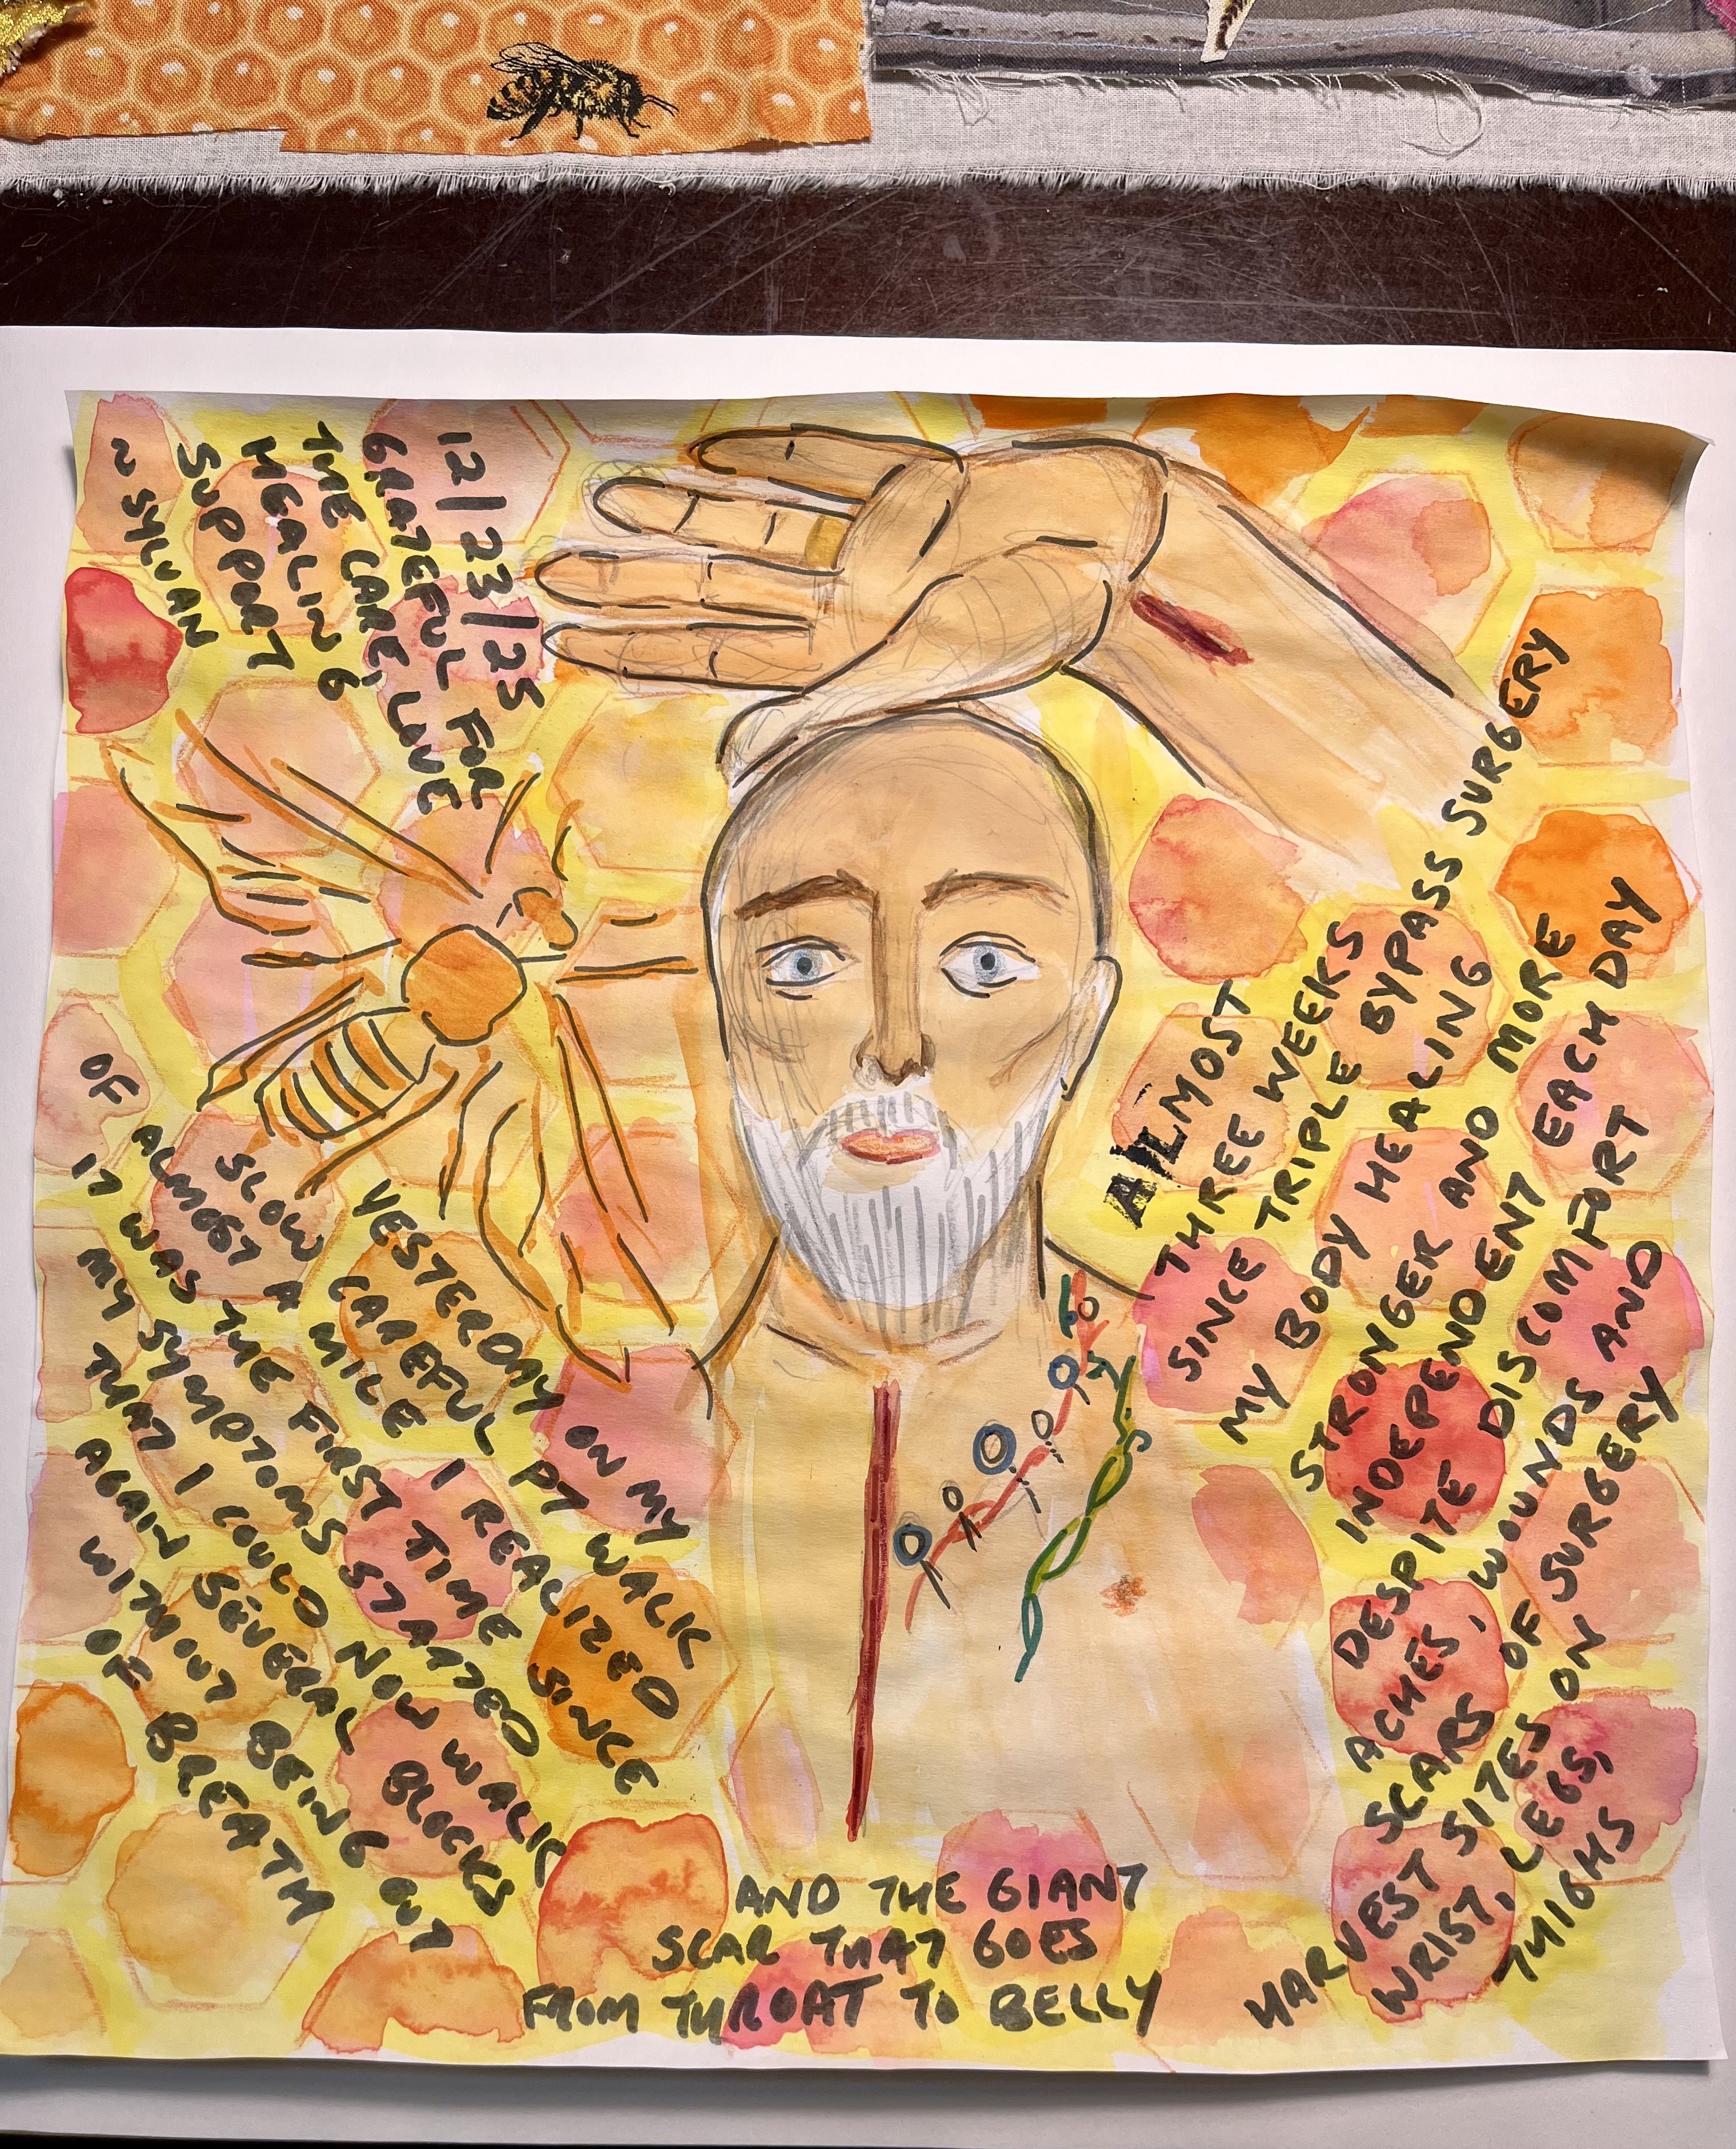 ALMOST
THREE WEEKS
SINCE TRIPLE BYPASS SURGERY
MY BODY HEALING
STRONGER AND MORE
INDEPENDENT EACH DAY
DESPITE DISCOMFORT
ACHES, WOUNDS AND
SCARS OF SURGERY
HARVEST SITES ON
WRIST, LEGS,
THIGHS
AND THE GIANT
SCAR THAT GOES
FROM THROAT TO BELLY
YESTERDAY ON MY
SLOW CAREFUL PT WALK
OF ALMOST A MILE I REALIZED
IT WAS THE FIRST TIME SINCE
MY SYMPTOMS STARTED
THAT I COULD NOW WALK
AGAIN SEVERAL BLOCKS
WITHOUT BEING OUT
OF BREATH
12/23/25
GRATEFUL FOR
THE CARE, LOVE
HEALING
SUPPORT
~ SYLVAN